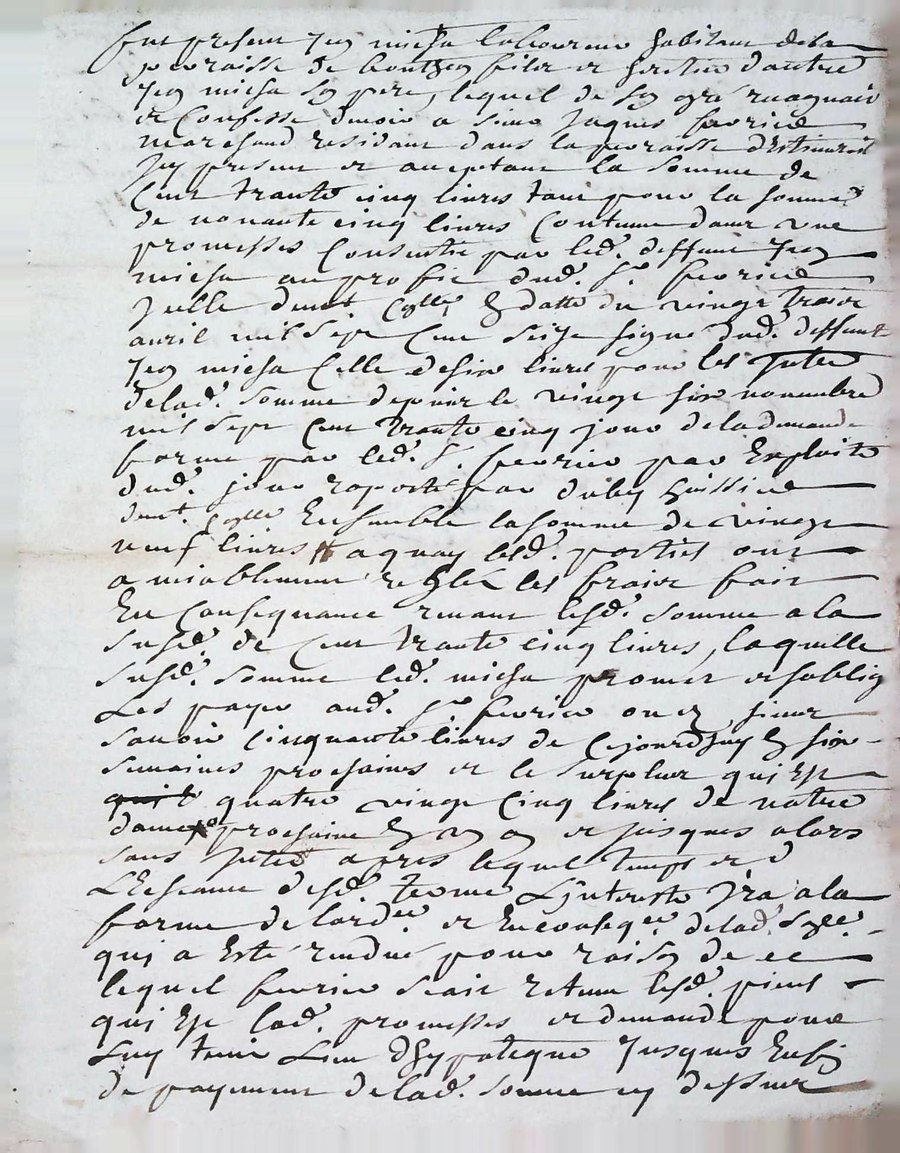 fut present Jean micha laboureur habitant de la
parraisse de                filz et heritier d'autre
Jean micha son pere, lequel de son gré recognait
et Confesse devoir a sieur Jaques fevrier
marchand residant dans la parraisse
Jcy present et acceptant la somme de
Cent trante cinq livres tant pour la somme
de nonante cinq livres Contenue dans une
promesses Consentie par led. deffunt Jean
micha au profit dud. Sr. fevrier
Jcelle deuet Collée En datte du vingt trois
auril mil sept Cent seize signe dud. deffunt
Jean micha Celle de six livres pour les Jnterê
delad. somme depuis le vingt six nouembre
mil sept Cent trante cinq jour de la demande
forme par led. S. fevrier par Exploit
dud. jour raporté par           huissier
deuet. Collé Ensemble la somme de vingt
neuf livres a quoy lesd. parties ont
amiablement reglé les fraix fait
En Consequance revenant lesd. somme a la
susd. de Cent trante cinq livres, laquelle
susd. somme led. micha promet et soblig
Les payer aud. Sr fevrier ou en sient
sauoir Cinquante livres de Cejourdhuy En six
semaines prochaines et le surplus qui Est
quatre vingt Cinq livres de notre
dame prochaine En un an et jusques alors
sans Jnterê apres lequel temps et
L'Escheance desd. terme L'Jnterest Jra a la
forme de lord.ce et En conseq.ce delad. Sze.
qui a Esté rendue pour raison de ce
lequel fevrier s'est retenu lesd. piece
qui Est lad. promesses et demande pour
Luy tenir Lieu d'hypoteque Jusques Enfin
de payement delad. somme cy dessus